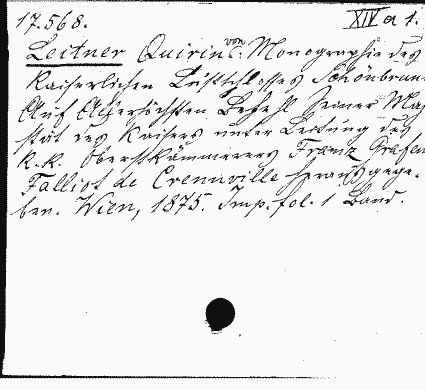 17.568. XIV a 1.
Leitner Quirin von: Monographie des
Kaiserlichen Lustschlosses Schönbrunn
Auf Allerhöchsten Befehl Seiner Maje
stät des Kaisers unter Leitung des
K. k. Oberstkämmerers Franz Grafen
Falliot de Crenneville herausgege-
ben. Wien, 1875. Imp. fol. 1 Band.